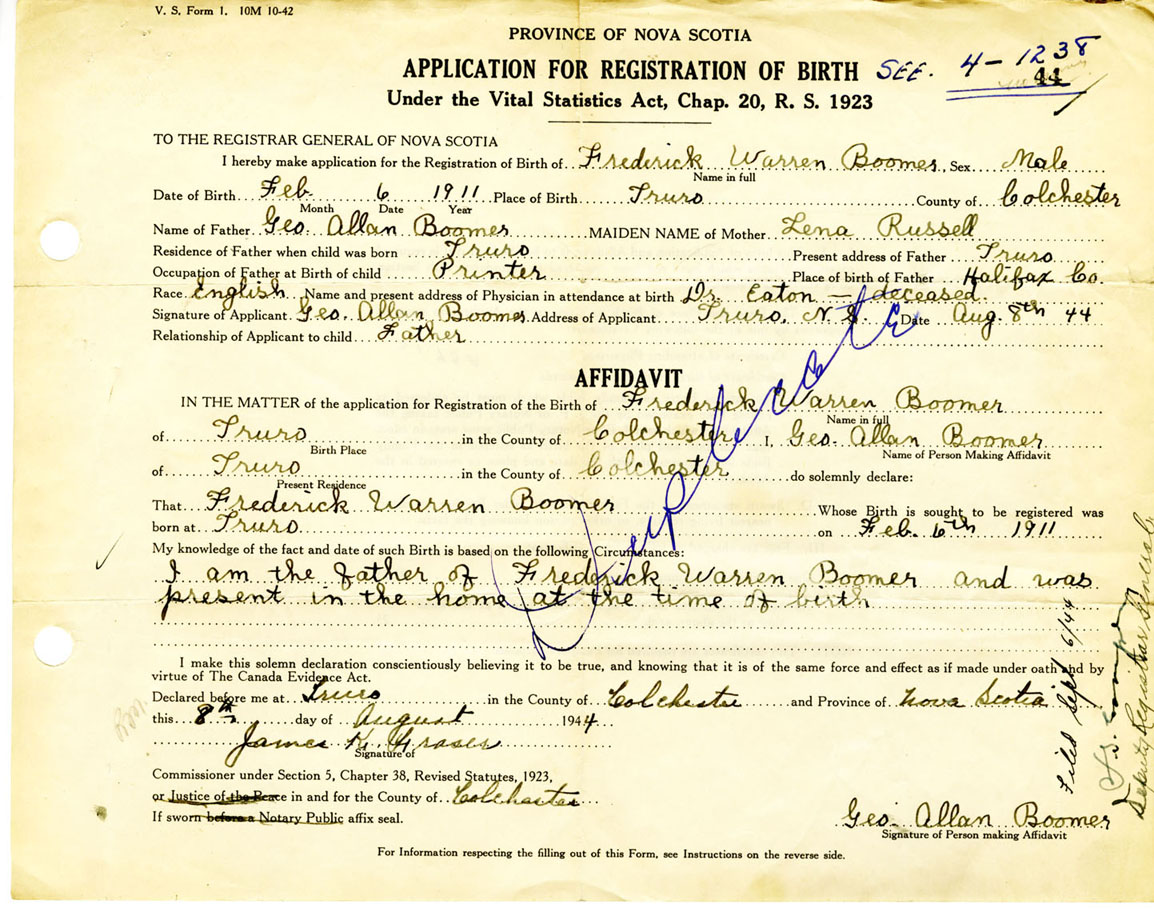 V. S. Form 1. 10M 10-42
PROVINCE OF NOVA SCOTIA
APPLICATION FOR REGISTRATION OF BIRTH SEE. 4-1238
44
Under the Vital Statistics Act, Chap. 20, R. S. 1923
TO THE REGISTRAR GENERAL OF NOVA SCOTIA
I hereby make application for the Registration of Birth of Frederick Warren Boomer, Sex Male
Name in full
Date of Birth Feb. 6 1911 Place of Birth Truro County of Colchester
Month Date Year
Name of Father Geo. Allan Boomer MAIDEN NAME of Mother Lena Russell
Residence of Father when child was born Truro Present address of Father Truro
Occupation of Father at Birth of child Printer Place of birth of Father Halifax Co.
Race English Name and present address of Physician in attendance at birth Dr. Eaton — deceased.
Signature of Applicant Geo. Allan Boomer Address of Applicant Truro, N.S. Date Aug. 8th 44
Relationship of Applicant to child Father
Duplicate
AFFIDAVIT
IN THE MATTER of the application for Registration of the Birth of Frederick Warren Boomer
Name in full
of Truro in the County of Colchester I, Geo. Allan Boomer
Birth Place Name of Person Making Affidavit
of Truro in the County of Colchester do solemnly declare:
Present Residence
That Frederick Warren Boomer Whose Birth is sought to be registered was
born at Truro on Feb. 6th 1911
My knowledge of the fact and date of such Birth is based on the following Circumstances:
I am the father of Frederick Warren Boomer and was
present in the home at the time of birth
I make this solemn declaration conscientiously believing it to be true, and knowing that it is of the same force and effect as if made under oath and by
virtue of The Canada Evidence Act.
Declared before me at Truro in the County of Colchester and Province of Nova Scotia
this 8th day of August 1944
James K. Fraser
Signature of
Commissioner under Section 5, Chapter 38, Revised Statutes, 1923,
or Justice of the Peace in and for the County of Colchester
If sworn before a Notary Public affix seal.
Geo. Allan Boomer
Signature of Person making Affidavit
For Information respecting the filling out of this Form, see Instructions on the reverse side.
Filed Sept 6/44
Deputy Registrar General